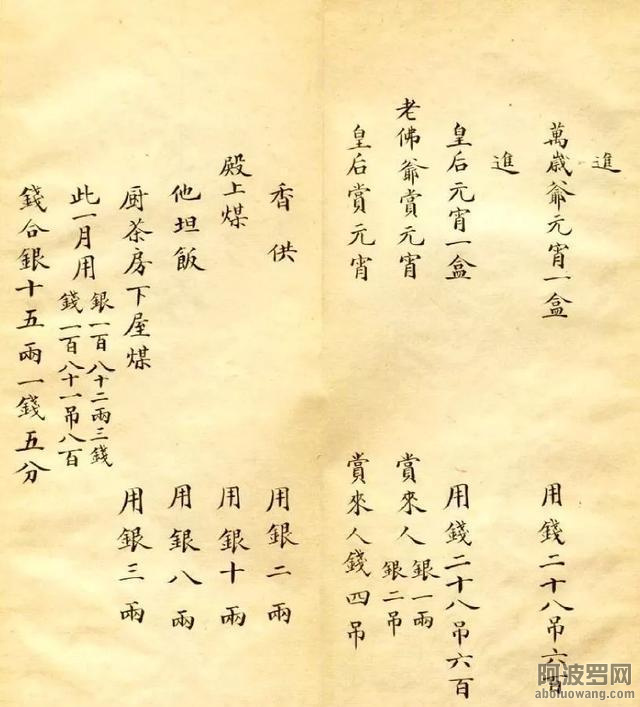 進
萬歲爺元宵一盒 用錢二十八吊六百
進
皇后元宵一盒 用錢二十八吊六百
老佛爺賞元宵 賞來人銀一兩銀二吊
皇后賞元宵 賞來人錢四吊
香供 用銀二兩
殿上煤 用銀十兩
他坦飯 用銀八兩
厨茶房下屋煤 用銀三兩
此一月用銀一百八十二兩三錢錢一百八十一吊八百
錢合銀十五兩一錢五分
阿波罗网
aboluowang.com